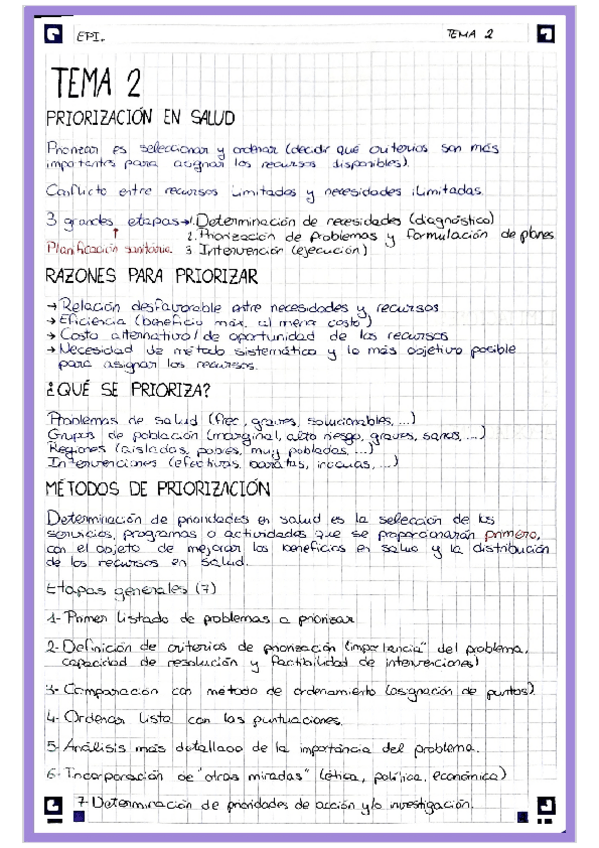 EPI.
TEMA 2
TEMA 2
PRIORIZACIÓN EN SALUD
Priorizar es seleccionar y ordenar (decidir qué criterios son más
importantes para asignar los recursos disponibles).
Conflicto entre recursos limitados y necesidades ilimitadas.
3 grandes etapas→1. Determinación de necesidades (diagnóstico)
2. Priorización de problemas y formulación de planes
Planificación sanitaria. 3 Intervención (ejecución)
RAZONES PARA PRIORIZAR
→ Relación desfavorable entre necesidades y recursos
→ Eficiencia (beneficio máx. al menor costo)
→ Costo alternativo / de oportunidad de los recursos
→ Necesidad de método sistemático y lo más objetivo posible
para asignar los recursos.
¿QUÉ SE PRIORIZA?
Problemas de salud (frec., graves, solucionables, ...)
Grupos de población (marginal, alto riesgo, graves, sanos, ...)
Regiones (aisladas, pobres, muy pobladas, ...)
Intervenciones (efectivas, baratas, inocuas, ...)
MÉTODOS DE PRIORIZACIÓN
Determinación de prioridades en salud es la selección de los
servicios, programas o actividades que se proporcionarán primero,
con el objeto de mejorar los beneficios en salud y la distribución
de los recursos en salud.
Etapas generales (7)
1- Primer listado de problemas a priorizar
2- Definición de criterios de priorización ("importancia" del problema,
capacidad de resolución y factibilidad de intervenciones)
3- Comparación con método de ordenamiento (asignación de puntos)
4- Ordenar lista con las puntuaciones.
5- Análisis más detallado de la importancia del problema.
6- Incorporación de "otras miradas" (ética, política, económica)
7- Determinación de prioridades de acción y/o investigación.